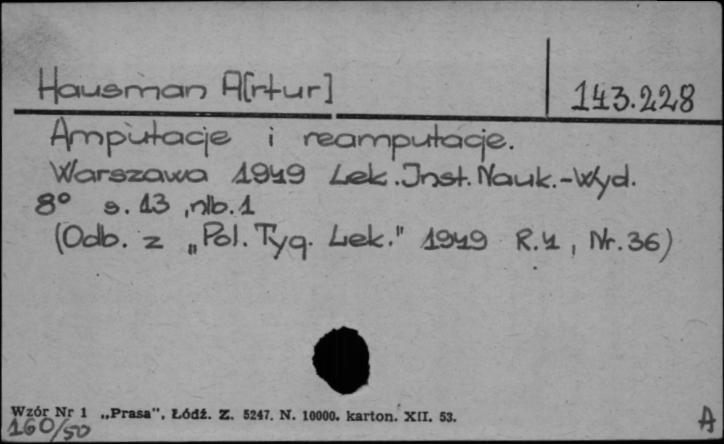 Hausman A[rtur]
143.228
Amputacje i reamputacje.
Warszawa 1949 Lek. Inst. Nauk.-Wyd.
8° s. 13, nlb. 1
(Odb. z „Pol. Tyg. Lek." 1949 R. 4, Nr. 36)
Wzór Nr 1 „Prasa", Łódź. Z. 5247. N. 10000. karton. XII. 53.
160/50
A